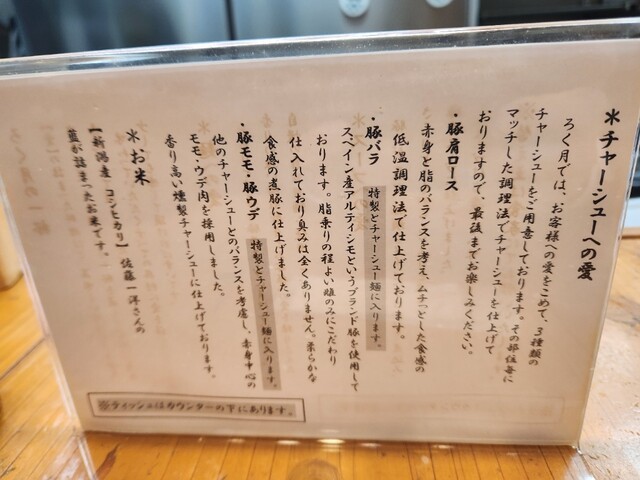 ＊チャーシューへの愛
ろく月では、お客様への愛をこめて、3種類の
チャーシューをご用意しております。その部位毎に
マッチした調理法でチャーシューを仕上げて
おりますので、最後までお楽しみください。
・豚肩ロース
赤身と脂のバランスを考え、ムチっとした食感の
低温調理法で仕上げております。
・豚バラ 特製とチャーシュー麺に入ります。
スペイン産アルティシモというブランド豚を使用して
おります。脂乗りの程よい雌のみにこだわり
仕入れており臭みは全くありません。柔らかな
食感の煮豚に仕上げました。
・豚モモ・豚ウデ 特製とチャーシュー麺に入ります。
他のチャーシューとのバランスを考慮し、赤身中心の
モモ・ウデ肉を採用しました。
香り高い燻製チャーシューに仕上げております。
＊お米
【新潟産 コシヒカリ】佐藤一洋さんの
藍が詰まったお米です。
※ティッシュはカウンターの下にあります。